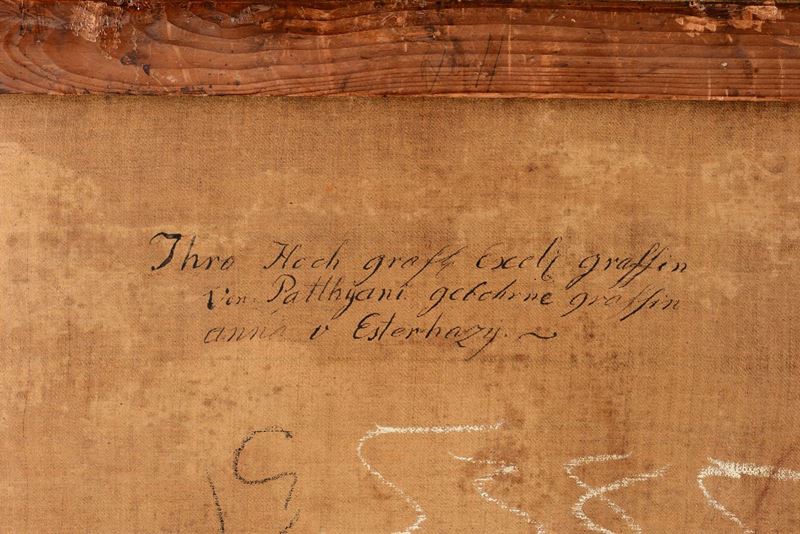 Ihro Hoch graffl Excelj graffin
Von Patthyani gebohrne graffin
anna v Esterhazy. ~